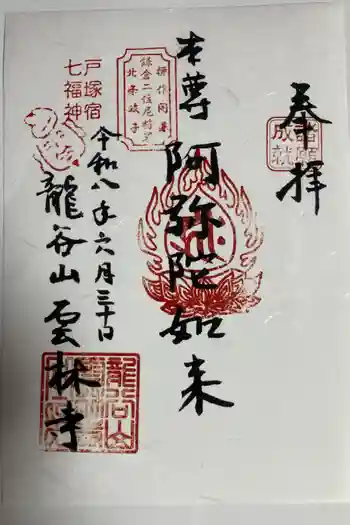 奉拝
諸願
成就
本尊 阿弥陀如来
鎌倉二位尼
北条政子
戸塚宿
七福神
令和八年六月三十日
龍谷山 雲林寺